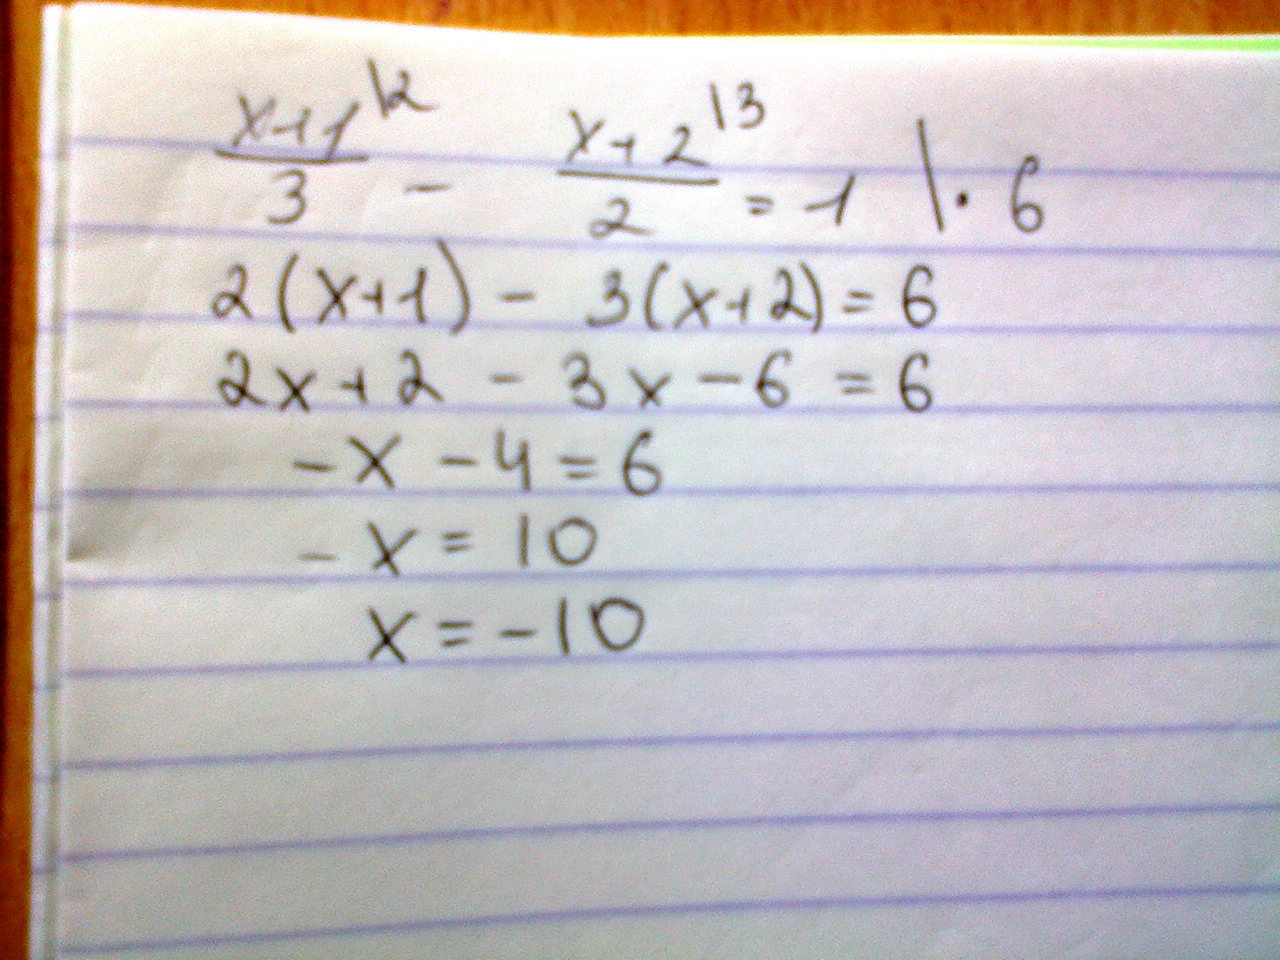 (x+1)/3 \2 - (x+2)/2 \3 = 1 | · 6
2(x+1) - 3(x+2) = 6
2x+2 - 3x - 6 = 6
-x - 4 = 6
-x = 10
x = -10